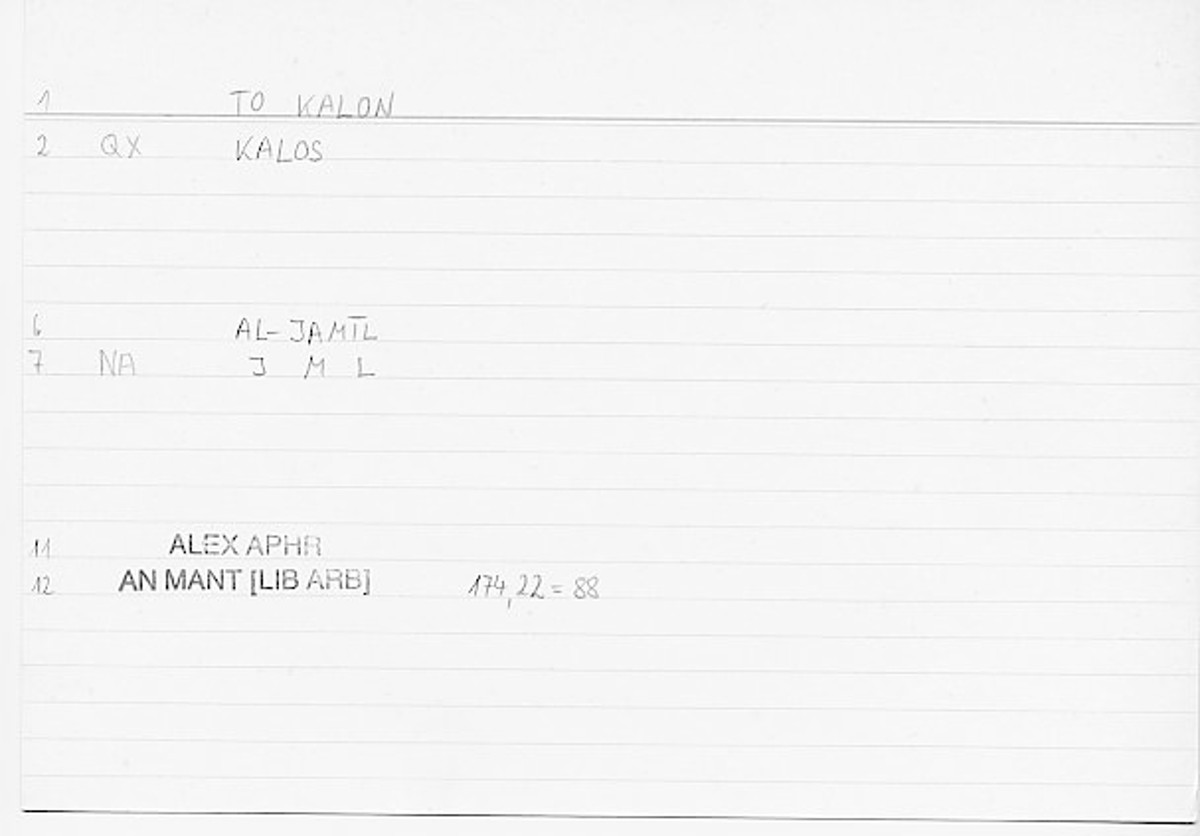 1 TO KALON
2 QX KALOS
6 AL-JAMĪL
7 NA J M L
11 ALEX APHR
12 AN MANT [LIB ARB] 174,22 = 88